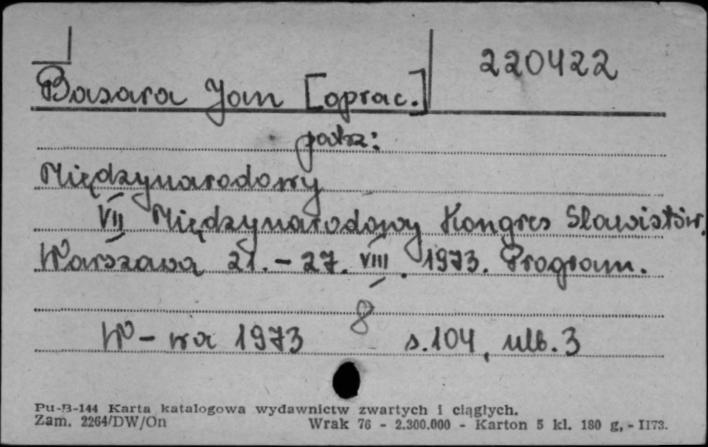 220422
Basara Jan [oprac.]
patrz:
Międzynarodowy
VII Międzynarodowy Kongres Slawistów.
Warszawa 21. – 27. VIII. 1973. Program.
8
W-wa 1973 s.104, nlb. 3
Pu-B-144 Karta katalogowa wydawnictw zwartych i ciągłych.
Zam. 2264/DW/On Wrak 76 - 2.300.000 - Karton 5 kl. 180 g, - 1173.